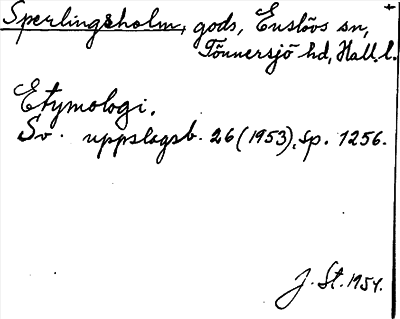 Sperlingsholm, gods, Enslövs sn,
Tönnersjö hd, Hall. l.
Etymologi.
Sv. uppslagsb. 26 (1953), sp. 1256.
J. St. 1954.